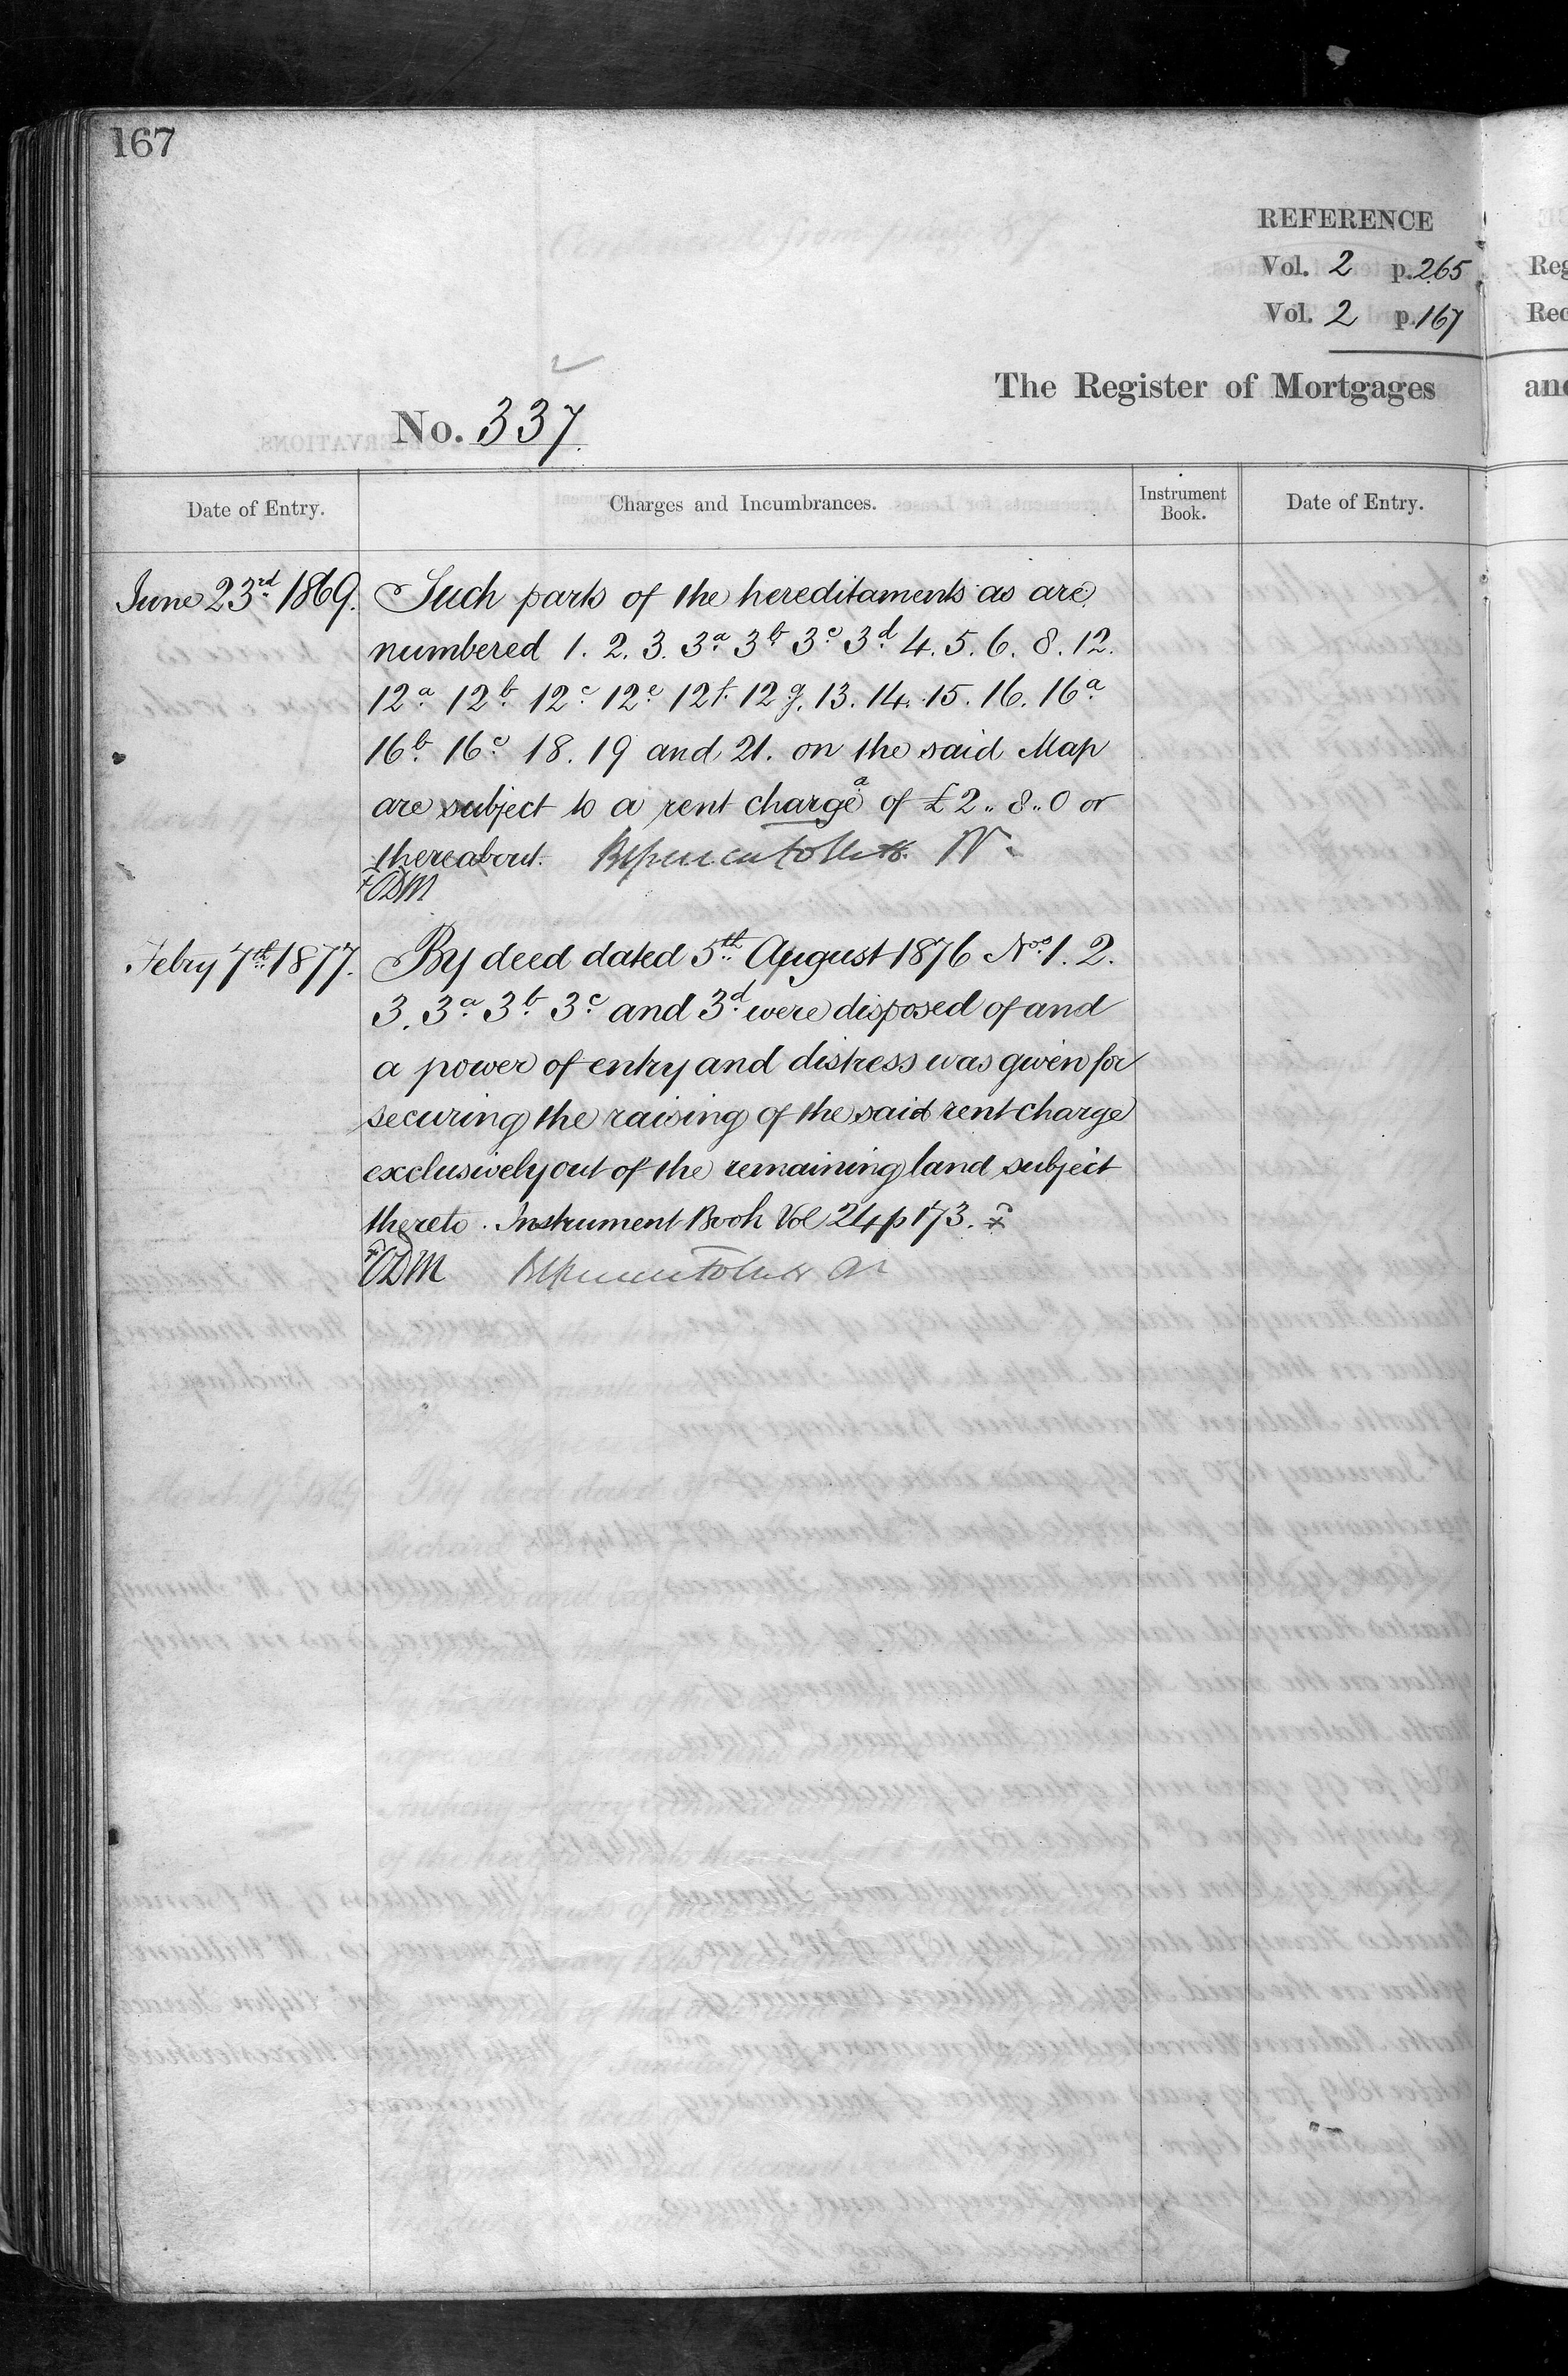 167
REFERENCE
Vol. 2 p. 265
Vol. 2 p. 167
The Register of Mortgages
No. 337.
Date of Entry.
Charges and Incumbrances.
Instrument Book.
Date of Entry.
June 23rd 1869. Such parts of the hereditaments as are
numbered 1. 2. 3. 3a 3b 3c 3d 4. 5. 6. 8. 12.
12a 12b 12c 12e 12f. 12g. 13. 14. 15. 16. 16a
16b 16c 18. 19 and 21. on the said Map
are subject to a rent charge a of £2 „ 8 „ 0 or
thereabout.
ODM
Febry 7th 1877. By deed dated 5th August 1876 Nos 1. 2.
3. 3a 3b 3c and 3d were disposed of and
a power of entry and distress was given for
securing the raising of the said rent charge
exclusively out of the remaining land subject
thereto. Instrument Book Vol 24 p 173.
ODM
Reg
Rec
and